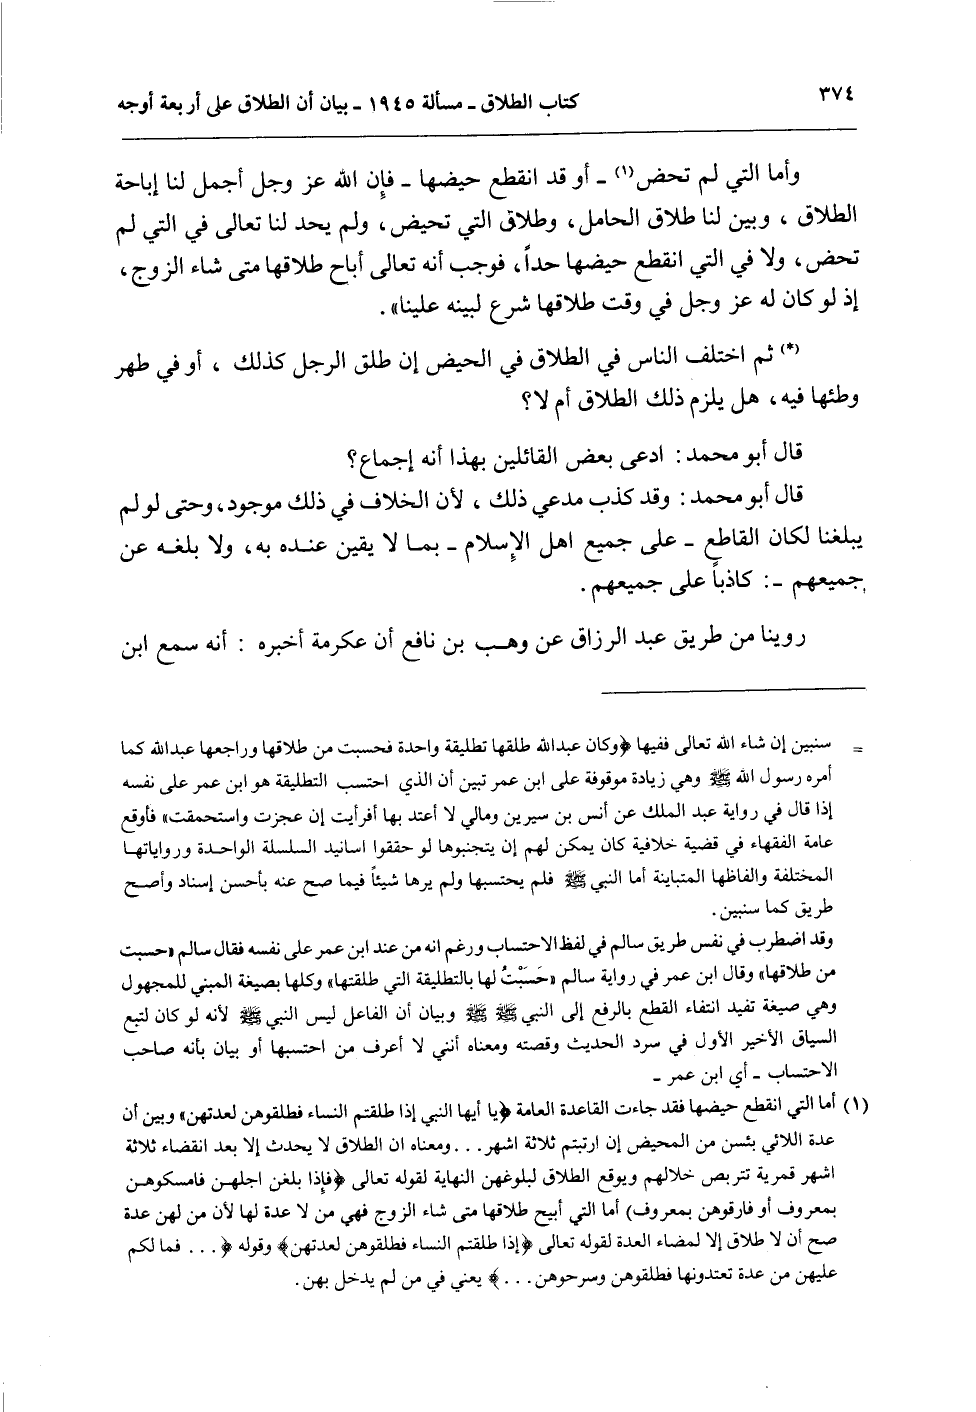 ٣٧٤
كتاب الطلاق ـ مسألة ١٩٤٥ ـ بيان أن الطلاق على أربعة أوجه
وأما التي لم تحض(١) ـ أو قد انقطع حيضها ـ فإن الله عز وجل أجمل لنا إباحة
الطلاق ، وبين لنا طلاق الحامل، وطلاق التي تحيض، ولم يحد لنا تعالى في التي لم
تحض، ولا في التي انقطع حيضها حداً، فوجب أنه تعالى أباح طلاقها متى شاء الزوج،
إذ لو كان له عز وجل في وقت طلاقها شرع لبينه علينا» .
(*) ثم اختلف الناس في الطلاق في الحيض إن طلق الرجل كذلك ، أو في طهر
وطئها فيه، هل يلزم ذلك الطلاق أم لا؟
قال أبو محمد: ادعى بعض القائلين بهذا أنه إجماع؟
قال أبو محمد: وقد كذب مدعي ذلك ، لأن الخلاف في ذلك موجود، وحتى لو لم
يبلغنا لكان القاطع ـ على جميع اهل الإسلام ـ بمـا لا يقين عنـده به، ولا بلغـه عن
جميعهم ـ: كاذباً على جميعهم.
روينا من طريق عبد الرزاق عن وهـب بن نافع أن عكرمة أخبره : أنه سمع ابن
= سنبين إن شاء الله تعالى ففيها ﴿وكان عبدالله طلقها تطليقة واحدة فحسبت من طلاقها وراجعها عبدالله كما
أمره رسول الله ﷺ وهي زيادة موقوفة على ابن عمر تبين أن الذي احتسب التطليقة هو ابن عمر على نفسه
إذا قال في رواية عبد الملك عن أنس بن سيرين ومالي لا أعتد بها أفرأيت إن عجزت واستحمقت» فأوقع
عامة الفقهاء في قضية خلافية كان يمكن لهم إن يتجنبوها لو حققوا اسانيد السلسلة الواحـدة وروياتهـا
المختلفة والفاظها المتباينة أما النبي ﷺ فلم يحتسبها ولم يرها شيئاً فيما صح عنه بأحسن إسناد وأصـح
طريق كما سنبين .
وقد اضطرب في نفس طريق سالم في لفظ الاحتساب ورغم انه من عند ابن عمر على نفسه فقال سالم «حسبت
من طلاقها» وقال ابن عمر في رواية سالم «حَسَبْتُ لها بالتطليقة التي طلقتها» وكلها بصيغة المبني للمجهول
وهي صيغة تفيد انتفاء القطع بالرفع إلى النبي ﷺ ﷺ وبيان أن الفاعل ليس النبي ﷺ لأنه لو كان لتبع
السياق الأخير الأول في سرد الحديث وقصته ومعناه أنني لا أعرف من احتسبها أو بيان بأنه صاحب
الاحتساب ـ أي ابن عمر ـ
(١) أما التي انقطع حيضها فقد جاءت القاعدة العامة ﴿يا أيها النبي إذا طلقتم النساء فطلقوهن لعدتهن» وبين أن
عدة اللائي يئسن من المحيض إن ارتبتم ثلاثة اشهر . . . ومعناه ان الطلاق لا يحدث إلا بعد انقضاء ثلاثة
اشهر قمرية تتربص خلالهم ويوقع الطلاق لبلوغهن النهاية لقوله تعالى ﴿فإذا بلغن اجلهـن فامسكوهـن
بمعروف أو فارقوهن بمعروف) أما التي أبيح طلاقها متى شاء الزوج فهي من لا عدة لها لأن من لهن عدة
صح أن لا طلاق إلا لمضاء العدة لقوله تعالى ﴿إذا طلقتم النساء فطلقوهن لعدتهن﴾ وقوله ﴿ . . . فما لكم
عليهن من عدة تعتدونها فطلقوهن وسرحوهن . . . ﴾ يعني في من لم يدخل بهن .